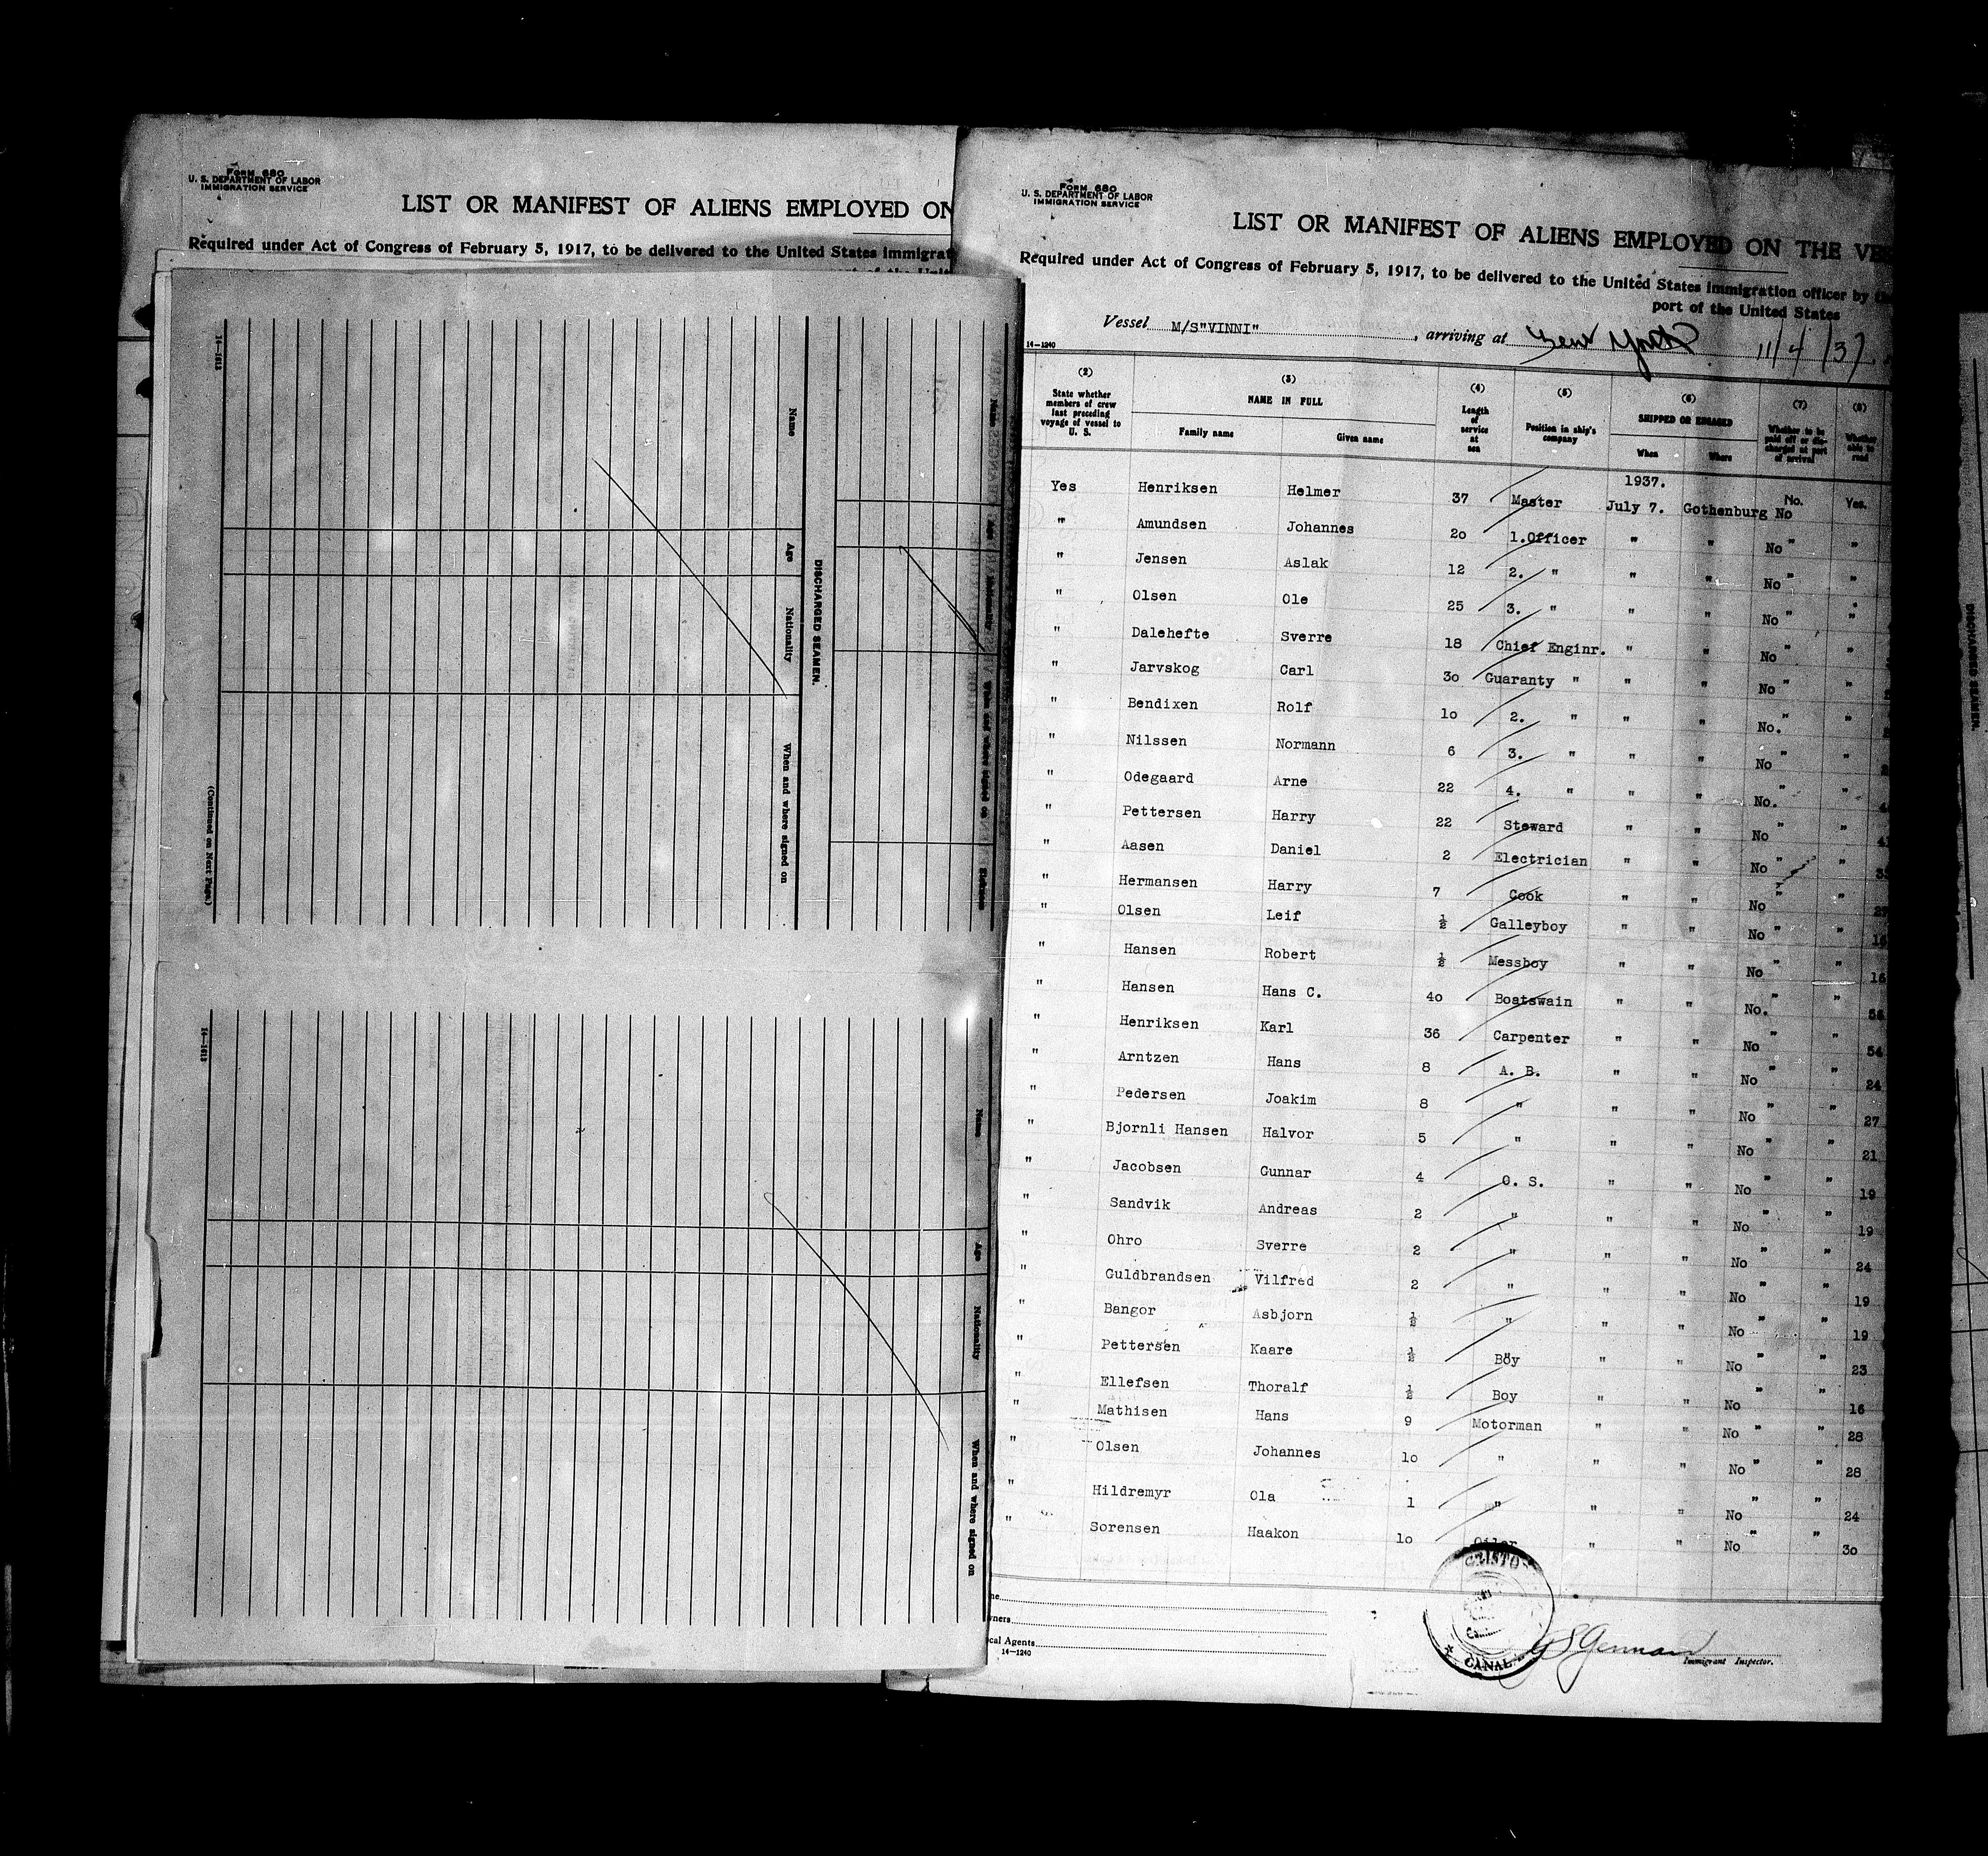 FORM 680
U. S. DEPARTMENT OF LABOR
IMMIGRATION SERVICE
LIST OR MANIFEST OF ALIENS EMPLOYED ON
Required under Act of Congress of February 5, 1917, to be delivered to the United States immigrat
14—1613
Name
Age
Nationality
When and where signed on
DISCHARGED SEAMEN.
(Continued on Next Page.)
14—1613
Name
Age
Nationality
When and where signed on
FORM 680
U. S. DEPARTMENT OF LABOR
IMMIGRATION SERVICE
LIST OR MANIFEST OF ALIENS EMPLOYED ON THE VES
Required under Act of Congress of February 5, 1917, to be delivered to the United States immigration officer by the
port of the United States
Vessel M/S"VINNI" , arriving at New York 11/4/37
14—1240
(2) (3) (4) (5) (6) (7) (8)
State whether members of crew last preceding voyage of vessel to U. S. NAME IN FULL Length of service at sea Position in ship's company SHIPPED OR ENGAGED Whether to be paid off or discharged at port of arrival Whether able to read
Family name Given name When Where
1937.
Yes Henriksen Helmer 37 Master July 7. Gothenburg No No. Yes.
" Amundsen Johannes 20 1.Officer " " No " "
" Jensen Aslak 12 2. " " " No " "
" Olsen Ole 25 3. " " " No " "
" Dalehefte Sverre 18 Chief Enginr. " " No " "
" Jarvskog Carl 30 Guaranty " " " No " "
" Bendixen Rolf 10 2. " " " No. " "
" Nilssen Normann 6 3. " " " No " "
" Odegaard Arne 22 4. " " " No. " "
" Pettersen Harry 22 Steward " " No " "
" Aasen Daniel 2 Electrician " " No " "
" Hermansen Harry 7 Cook " " No " "
" Olsen Leif ½ Galleyboy " " No " "
" Hansen Robert ½ Messboy " " No " " 16
" Hansen Hans C. 40 Boatswain " " No. " "
" Henriksen Karl 36 Carpenter " " No " " 54
" Arntzen Hans 8 A. B. " " No " " 24
" Pedersen Joakim 8 " " " No " " 27
" Bjornli Hansen Halvor 5 " " " No " " 21
" Jacobsen Gunnar 4 O. S. " " No " " 19
" Sandvik Andreas 2 " " " No " " 19
" Ohro Sverre 2 " " " No " " 24
" Guldbrandsen Vilfred 2 " " " No " " 19
" Bangor Asbjorn ½ " " " No " " 19
" Pettersen Kaare ½ Boy " " No " " 23
" Ellefsen Thoralf ½ Boy " " No " " 16
" Mathisen Hans 9 Motorman " " No " " 28
" Olsen Johannes 10 " " " No " " 28
" Hildremyr Ola 1 " " " No " " 24
" Sorensen Haakon 10 Oiler " " No " " 30
CRISTO
CANAL
Immigrant Inspector.
ners
cal Agents
14—1240
DISCHARGED SEAMEN.